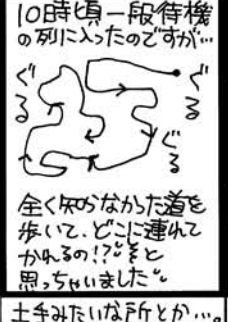 10時頃一段待機
の列に入ったのですが…
ぐる
ぐる
ぐる
全く知らなかった道を
歩いて、どこに連れて
かれるの!?と
思っちゃいました
土手みたいな所とか…。